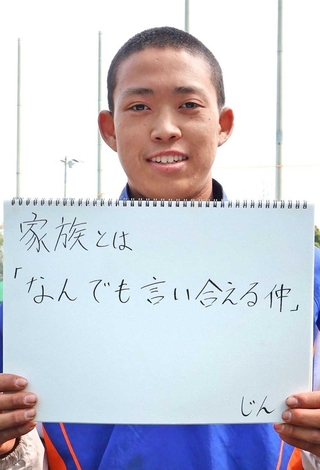 家族とは
「なんでも言い合える仲」
じん